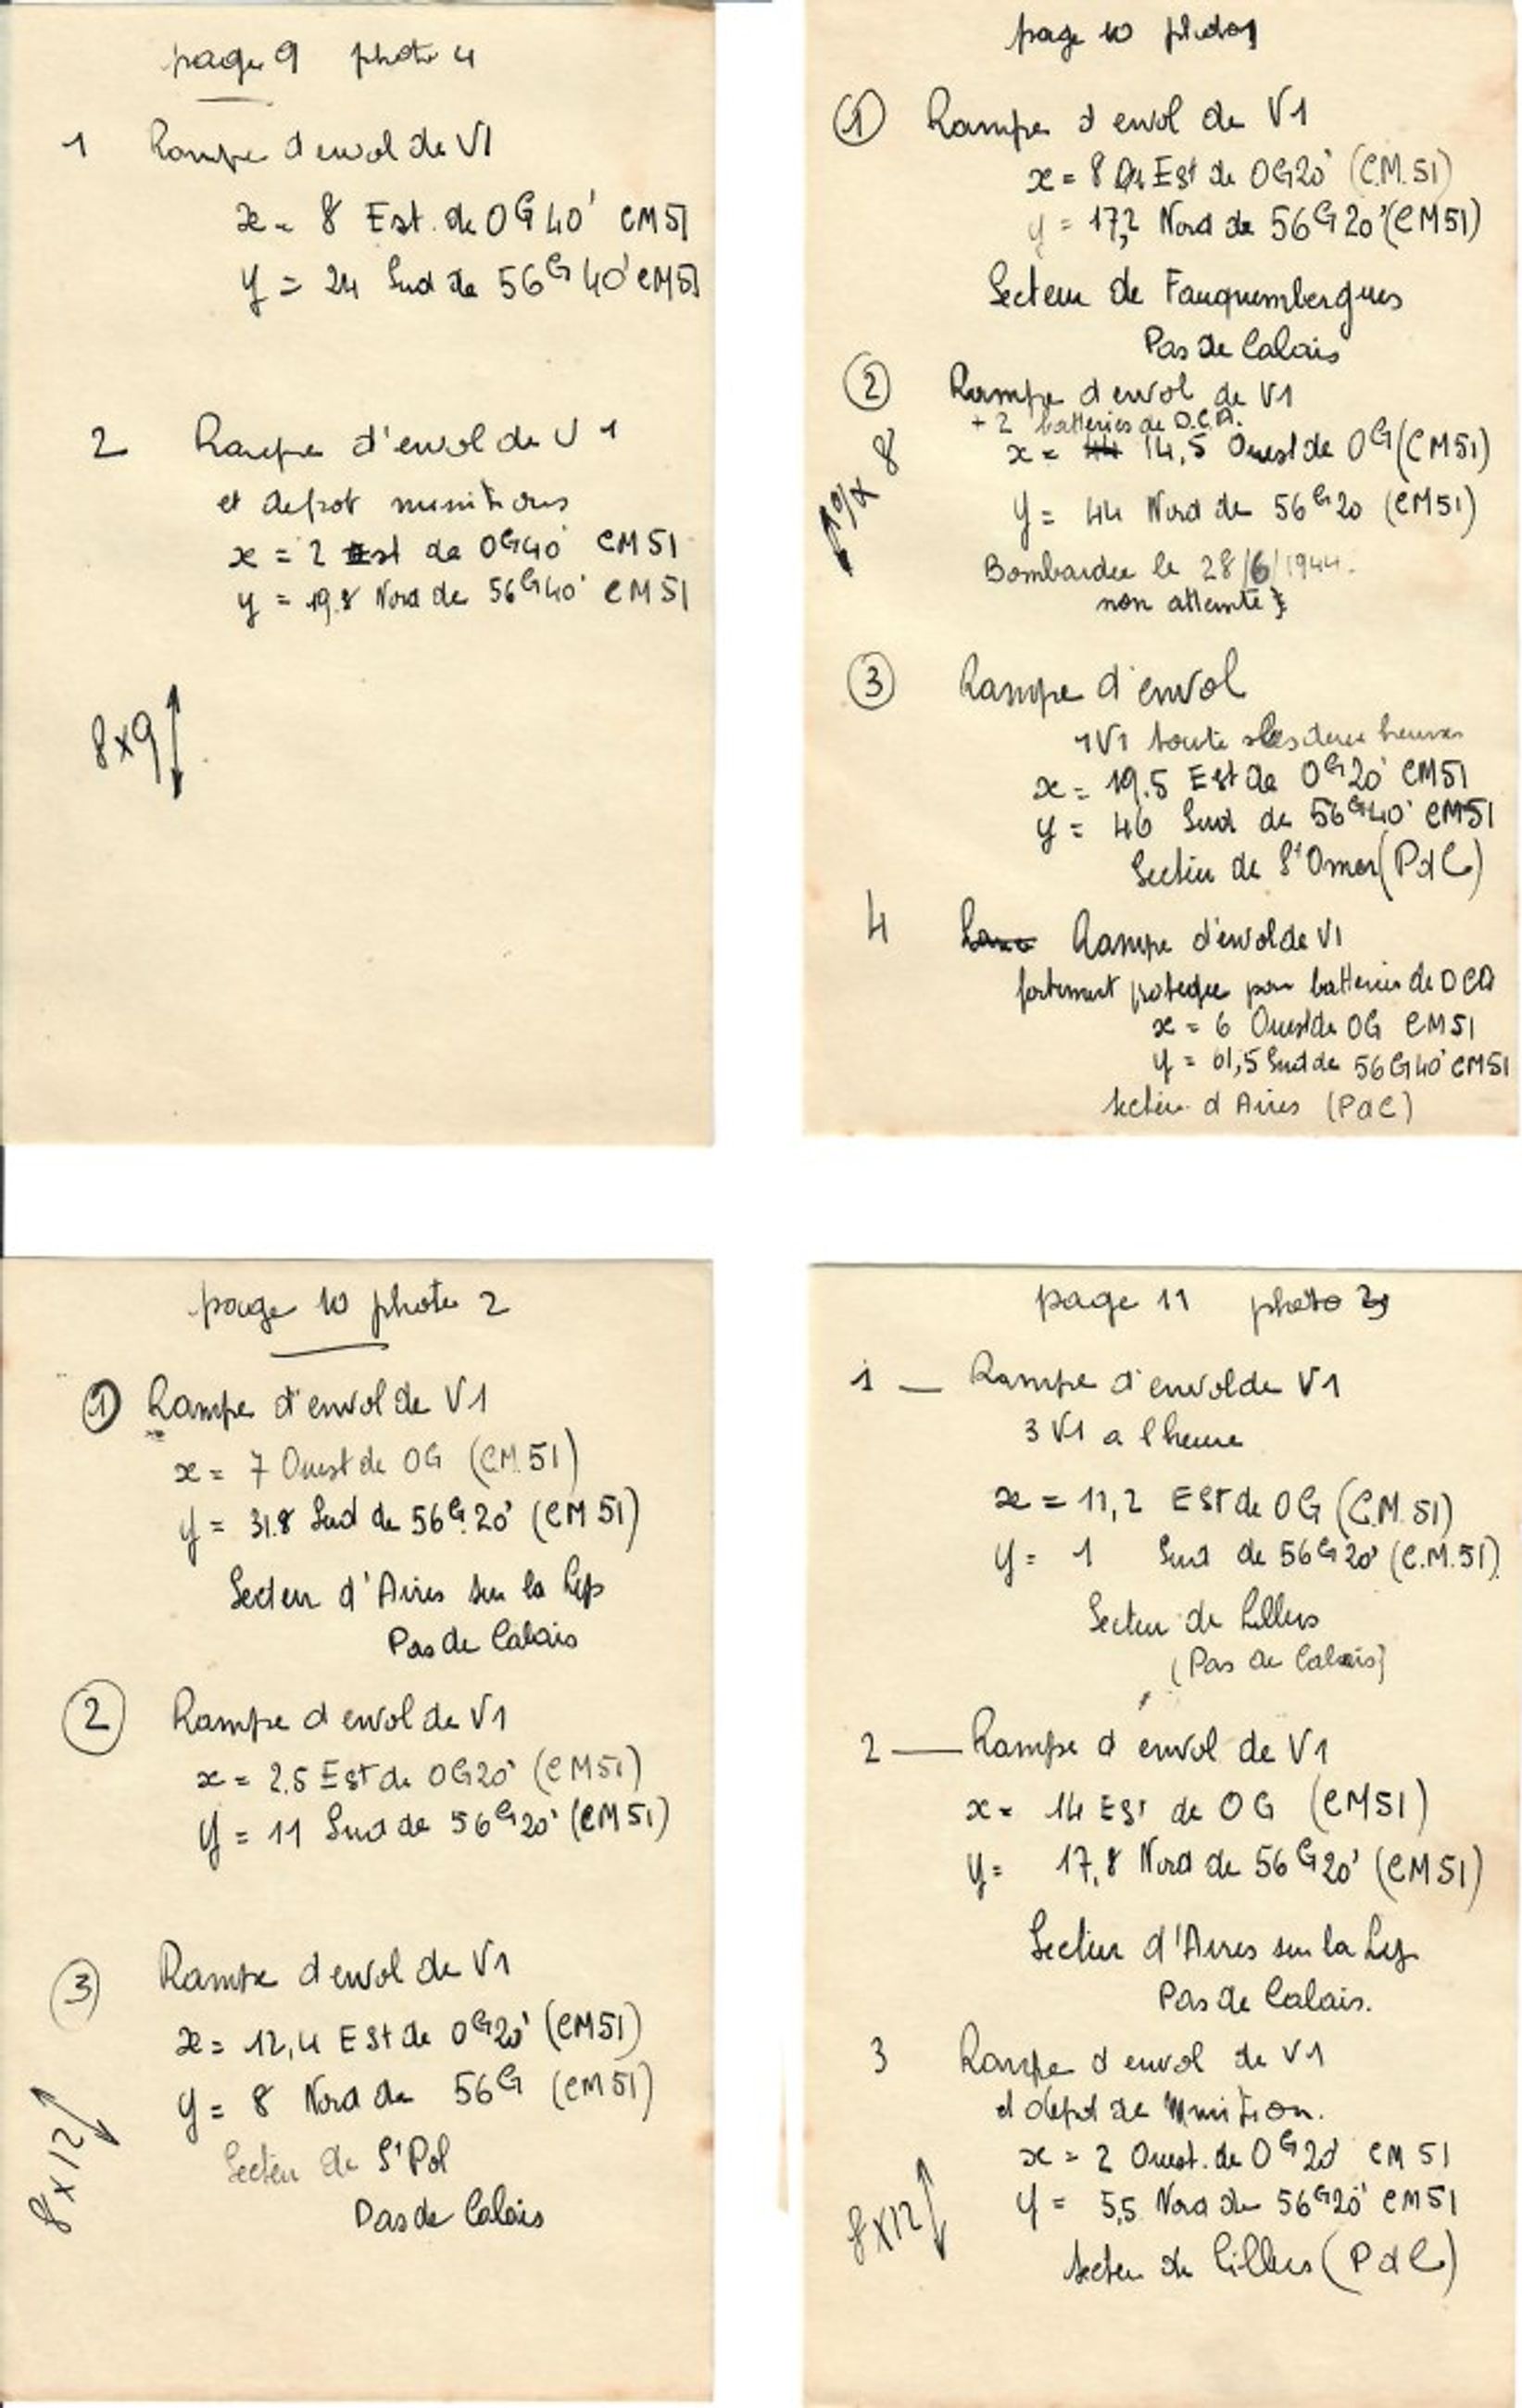 page 9 photo 4
1 Rampe d'envol de V1
x = 8 Est de 0G40' CM51
y = 24 Sud de 56G40' CM51
2 Rampe d'envol de V1
et depot munitions
x = 2 Est de 0G40' CM51
y = 19.8 Nord de 56G40' CM51
8x9
page 10 photo 1
① Rampe d envol de V1
x = 8 Est de 0G20' (C.M.51)
y = 17,2 Nord de 56G20' (CM51)
Secteur de Fauquembergues
Pas de Calais
② Rampe d'envol de V1
+ 2 batteries de D.C.A.
x = 14,5 Ouest de 0G (CM51)
y = 44 Nord de 56G20 (CM51)
Bombardée le 28/6/1944.
non atteinte
x 8
③ Rampe d'envol
1V1 toute les deux heures
x = 19.5 Est de 0G20' CM51
y = 46 Sud de 56G40' CM51
Secteur de St Omer (PdC)
4 Rampe d'envol de V1
fortement protegee par batteries de DCA
x = 6 Ouest de 0G CM51
y = 61,5 Sud de 56G40' CM51
secteur d Aires (PdC)
page 10 photo 2
① Rampe d'envol de V1
x = 7 Ouest de 0G (CM.51)
y = 31.8 Sud de 56G.20' (CM51)
Secteur d'Aires sur la Lys
Pas de Calais
② Rampe d envol de V1
x = 2.5 Est de 0G20' (CM51)
y = 11 Sud de 56G20' (CM51)
③ Rampe d envol de V1
x = 12,4 Est de 0G20' (CM51)
y = 8 Nord de 56G (CM51)
Secteur de St Pol
Pas de Calais
8x12
page 11 photo
1 — Rampe d'envol de V1
3 V1 a l'heure
x = 11,2 Est de 0G (C.M.51)
y = 1 Sud de 56G20' (C.M.51)
Secteur de Lillers
(Pas de Calais)
2 — Rampe d'envol de V1
x = 14 Est de 0G (CM51)
y = 17,8 Nord de 56G20' (CM51)
Secteur d'Aires sur la Lys
Pas de Calais.
3 Rampe d envol de V1
et depot de Munition.
x = 2 Ouest de 0G20' CM 51
y = 5,5 Nord de 56G20' CM51
secteur de Lillers (PdC)
8x12